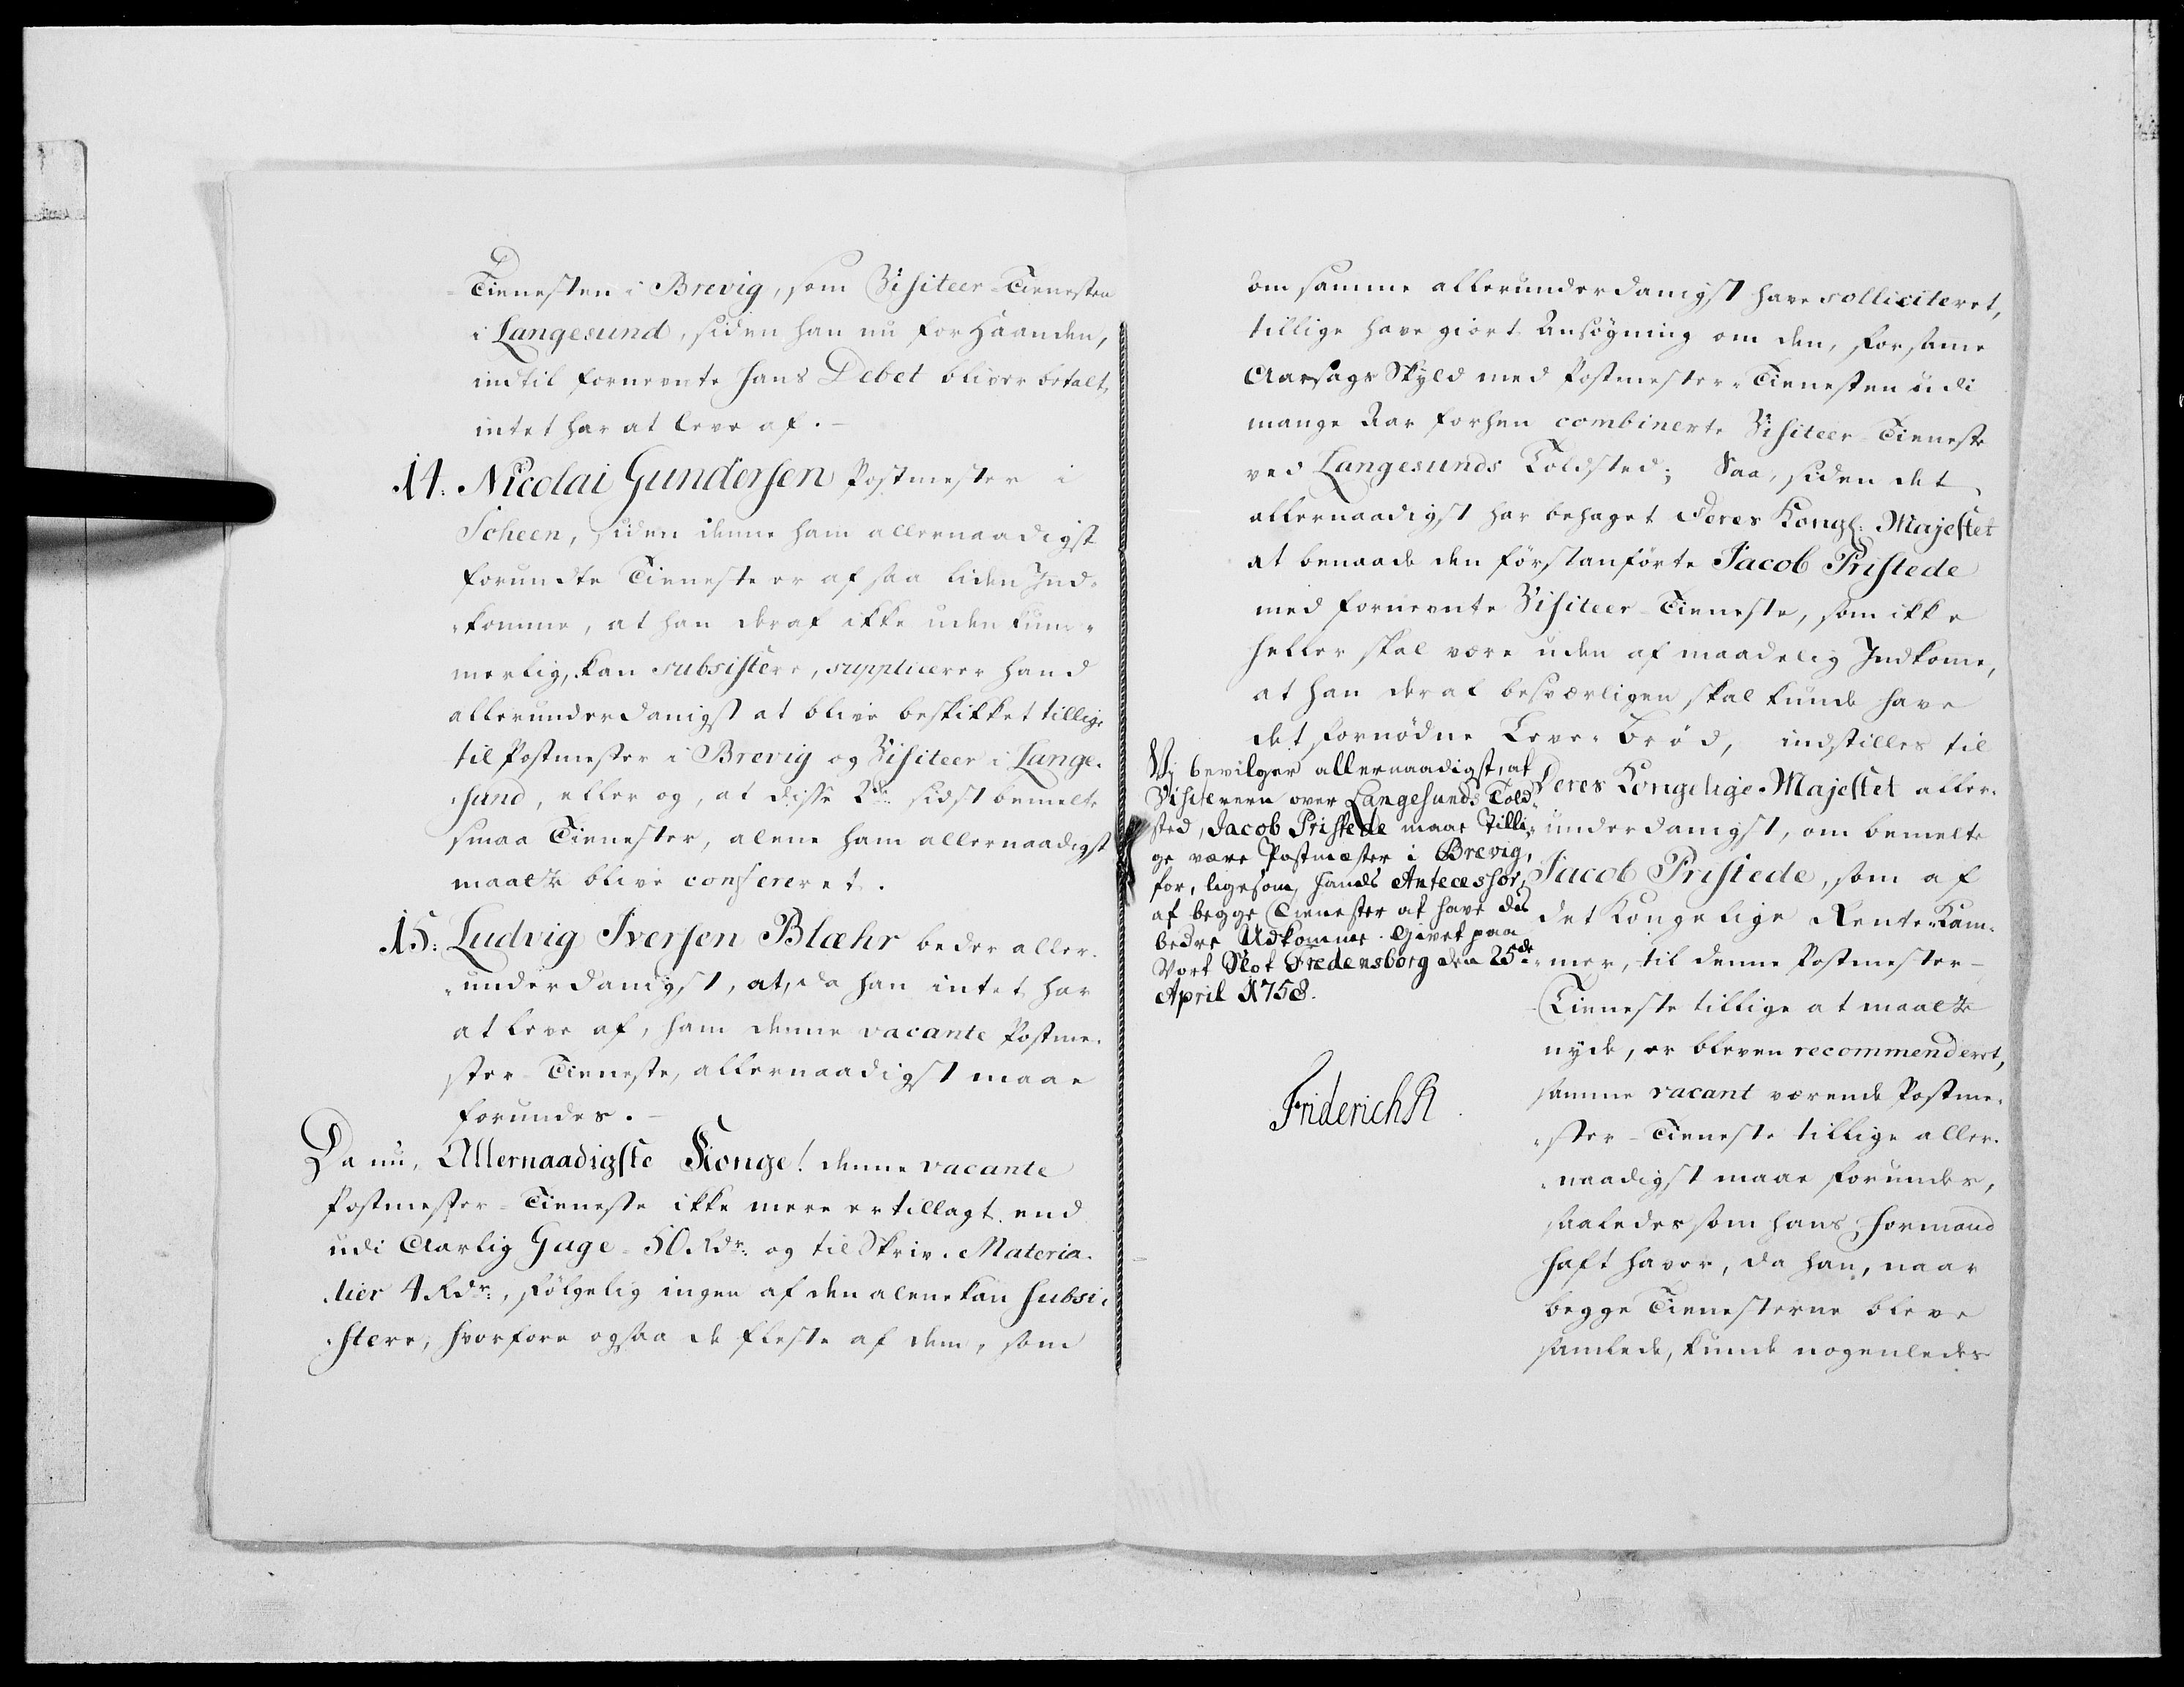 Tienesten i Brevig, som Visiteer-Tienesten
i Langesund, siden han nu for Haanden,
indtil fornevnte hans Debet bliver betalt,
intet har at leve af.-
14. Nicolai Gundersen Postmester i
Scheen, siden denne ham allernaadigst
forundte Tieneste er af saa liden Ind-
-komme, at han deraf ikke uden kum-
merlig, kan subsistere, supplicerer hand
allerunderdanigst at blive beskikket tillige
til Postmester i Brevig og Visiteer i Lange-
sund, eller og, at disse 2de sidst bemelte
smaa Tienester, alene ham allernaadigst
maatte blive confereret.
15: Ludvig Iversen Blæhr beder aller-
-underdanigst, at, da han intet har
at leve af, ham denne vacante Postme-
ster-Tieneste, allernaadigst maae
forundes.-
Da nu, Allernaadigste Konge! denne vacante
Postmester-Tieneste ikke mere er tillagt end
udi Aarlig Gage 50 Rdr: og til Skriv-Materia-
-lier 4 Rdr:, følgelig ingen af den alene kan subsi-
-stere, hvorfore ogsaa de fleste af dem, som
om samme allerunderdanigst have solliciteret,
tillige have giort Ansøgning om den, for same
Aarsags Skyld med Postmester-Tienesten udi
mange Aar forhen combinerte Visiteer-Tieneste
ved Langesunds Toldsted; Saa, siden det
allernaadigst har behaget Deres Kongl: Majestet
at benaade den førstanførte Jacob Pristede
med fornevnte Visiteer-Tieneste, som ikke
heller skal være uden af maadelig Indkome,
at han deraf besværligen skal kunde have
det fornødne Leve-Brød, indstilles til
Deres Kongelige Majestet aller-
-underdanigst, om bemelte
Jacob Pristede, som af
det Kongelige Rente-Kam-
-mer, til denne Postmester-
Tieneste tillige at maatte
nyde, er bleven recommenderet,
samme vacant værende Postme-
-ster-Tieneste tillige aller-
-naadigst maae forundes,
saaledes som hans Formand
haft haver, da han, naar
begge Tienesterne bleve
samlede, kunde nogenledes
Vj bevilger allernaadigst, at
Visiteren over Langesunds Told-
sted, Jacob Pristede maae Tilli-
ge være Postmæster i Brevig,
for, ligesom hands Antecessor,
af begge Tienester at have des
bedre Udkomme. Givet paa
Vort Slot Fredensborg den 25de
April 1758.
Friderich R